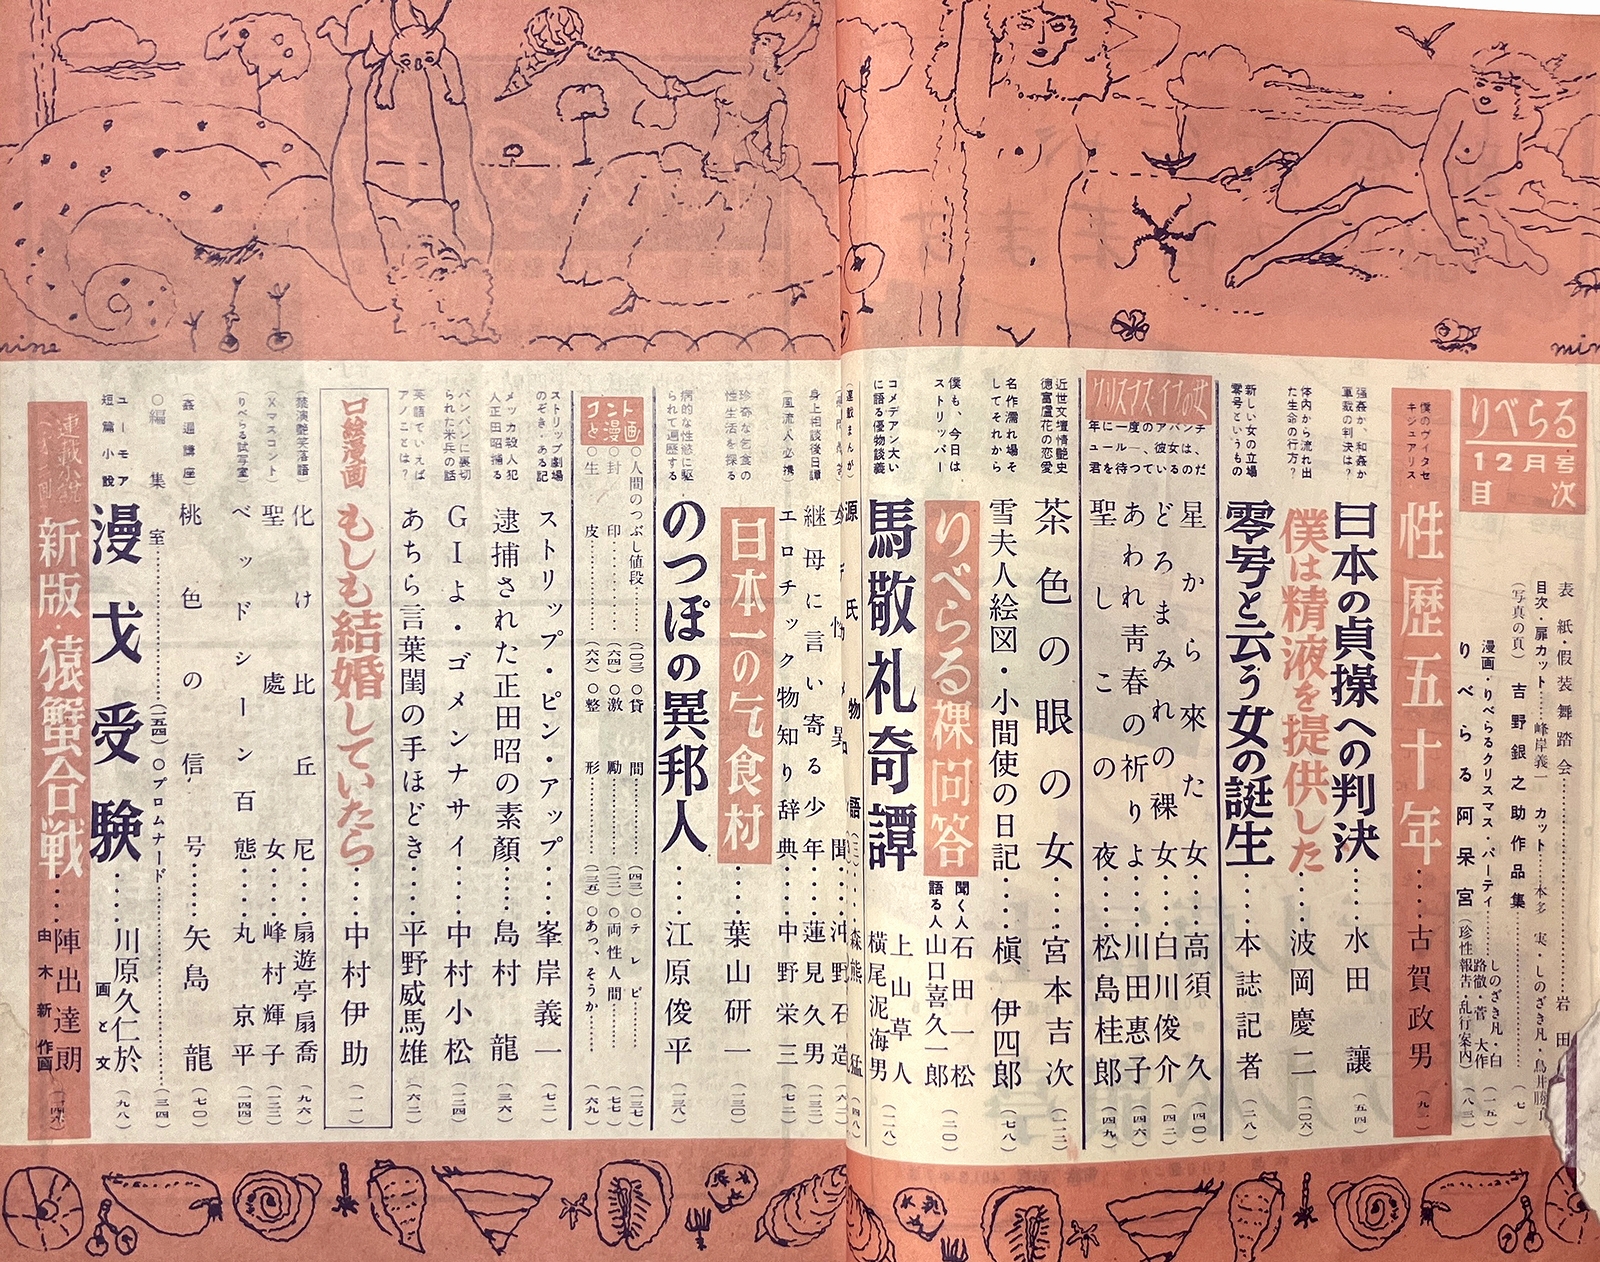 りべらる
12月号
目次
表紙・假装舞踏会……岩田
目次・扉カット……峰岸義一
カット……本多実・しのざき凡・鳥井勝
(写真の頁)吉野銀之助作品集……(七)
漫画・りべらるクリスマス・パーティ……しのざき凡・白路徹・菅大作(一五)
りべらる阿呆宮(珍性報告・乱行案内)(八三)
僕のヴィタセキジュアリス
性歴五十年……古賀政男(九一)
強姦か、和姦か
軍裁の判決は?
日本の貞操への判決……水田讓(五四)
体内から流れ出た生命の行方?
僕は精液を提供した……波岡慶二(一〇六)
新しい女の立場
零号というもの
零号と云う女の誕生……本誌記者(二八)
クリスマス・イヴの女
年に一度のアバンチュール――、彼女は、君を待つているのだ
星から來た女……高須久(四〇)
どろまみれの裸女……白川俊介(四二)
あわれ青春の祈りよ……川田惠子(四六)
聖しこの夜……松島桂郎(四九)
近世文壇情艶史
徳富蘆花の恋愛
茶色の眼の女……宮本吉次(一二二)
名作濡れ場そしてそれから
雪夫人絵図・小間使の日記……槇伊四郎(七八)
僕も、今日はストリッパー
りべらる裸問答
聞く人 石田一松
語る人 山口喜久一郎(二〇)
コメデアン大いに語る優物談義
馬敬礼奇譚
上山草人
横尾泥海男(一一八)
(連載まんが)
源氏物語(二)……森熊猛(四八)
沖野石造(六二)
身上相談後日譚
継母に言い寄る少年……蓮見久男(一三二)
(風流人必携)
エロチック物知り辞典……中野栄三(七二)
珍奇な乞食の性生活を探る
日本一の乞食村……葉山研一(一三〇)
病的な性慾に駆られて遍歴する
のつぽの異邦人……江原俊平(一三八)
コントと漫画
○人間のつぶし値段……(一〇三)○貸間……(四三)○テレビ……(一三七)
○封印……(六四)○激励……(二二)○両性人間……(七七)
○生皮……(六六)○整形……(一三五)○あっ、そうか……(六九)
ストリップ劇場のぞき・ある記
ストリップ・ピン・アップ……峯岸義一(七二)
メッカ殺人犯人正田昭捕る
逮捕された正田昭の素顏……島村龍(三六)
パンパンに裏切られた米兵の話
GIよ・ゴメンナサイ……中村小松(一二四)
英語でいえばアノことは?
あちら言葉閨の手ほどき……平野威馬雄(六二)
口絵漫画
もしも結婚していたら……中村伊助(一一)
(禁演艶笑落語)
化け比丘尼……扇遊亭扇喬(九六)
(Xマスコント)
聖處女……峰村輝子(一三二)
(りべらる試写室)
ベッドシーン百態……丸京平(一四四)
(姦通講座)
桃色の信号……矢島龍(七〇)
○編集室……(一五四)○プロムナード……(三四)
ユーモア短篇小説
漫戈受験……川原久仁於 画と文(九八)
新版・猿蟹合戦……陣出達朗
由木新作画(一四六)
mine